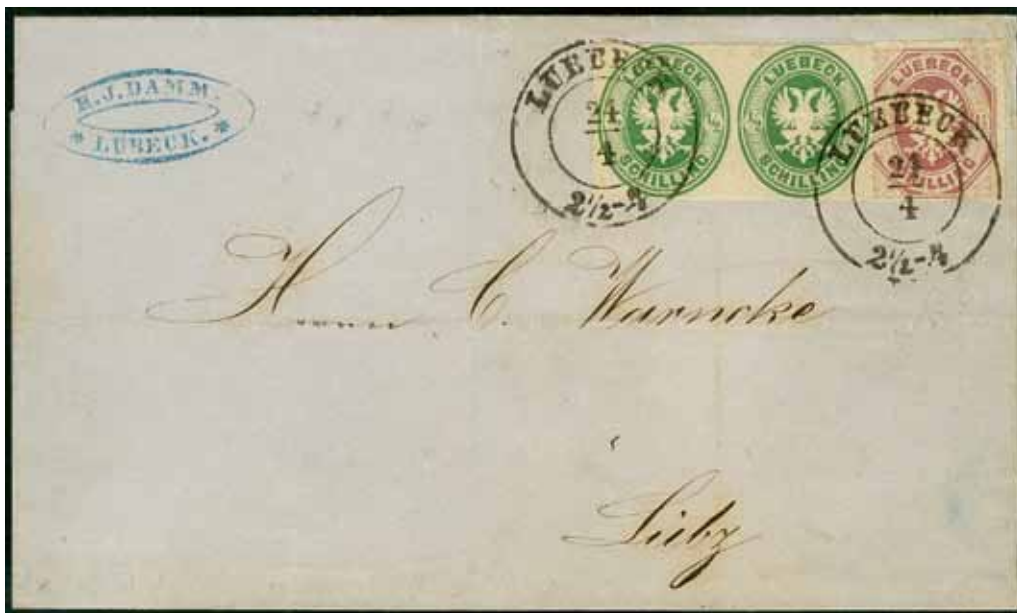 H. J. DAMM.
* LÜBECK. *
LUEBECK
21
4
2½-3
LUEBECK
½
SCHILLING
LUEBECK
½
SCHILLING
LUEBECK
SCHILLING
LUEBECK
21
4
2½-3
Herrn C. Warncke
Lübz